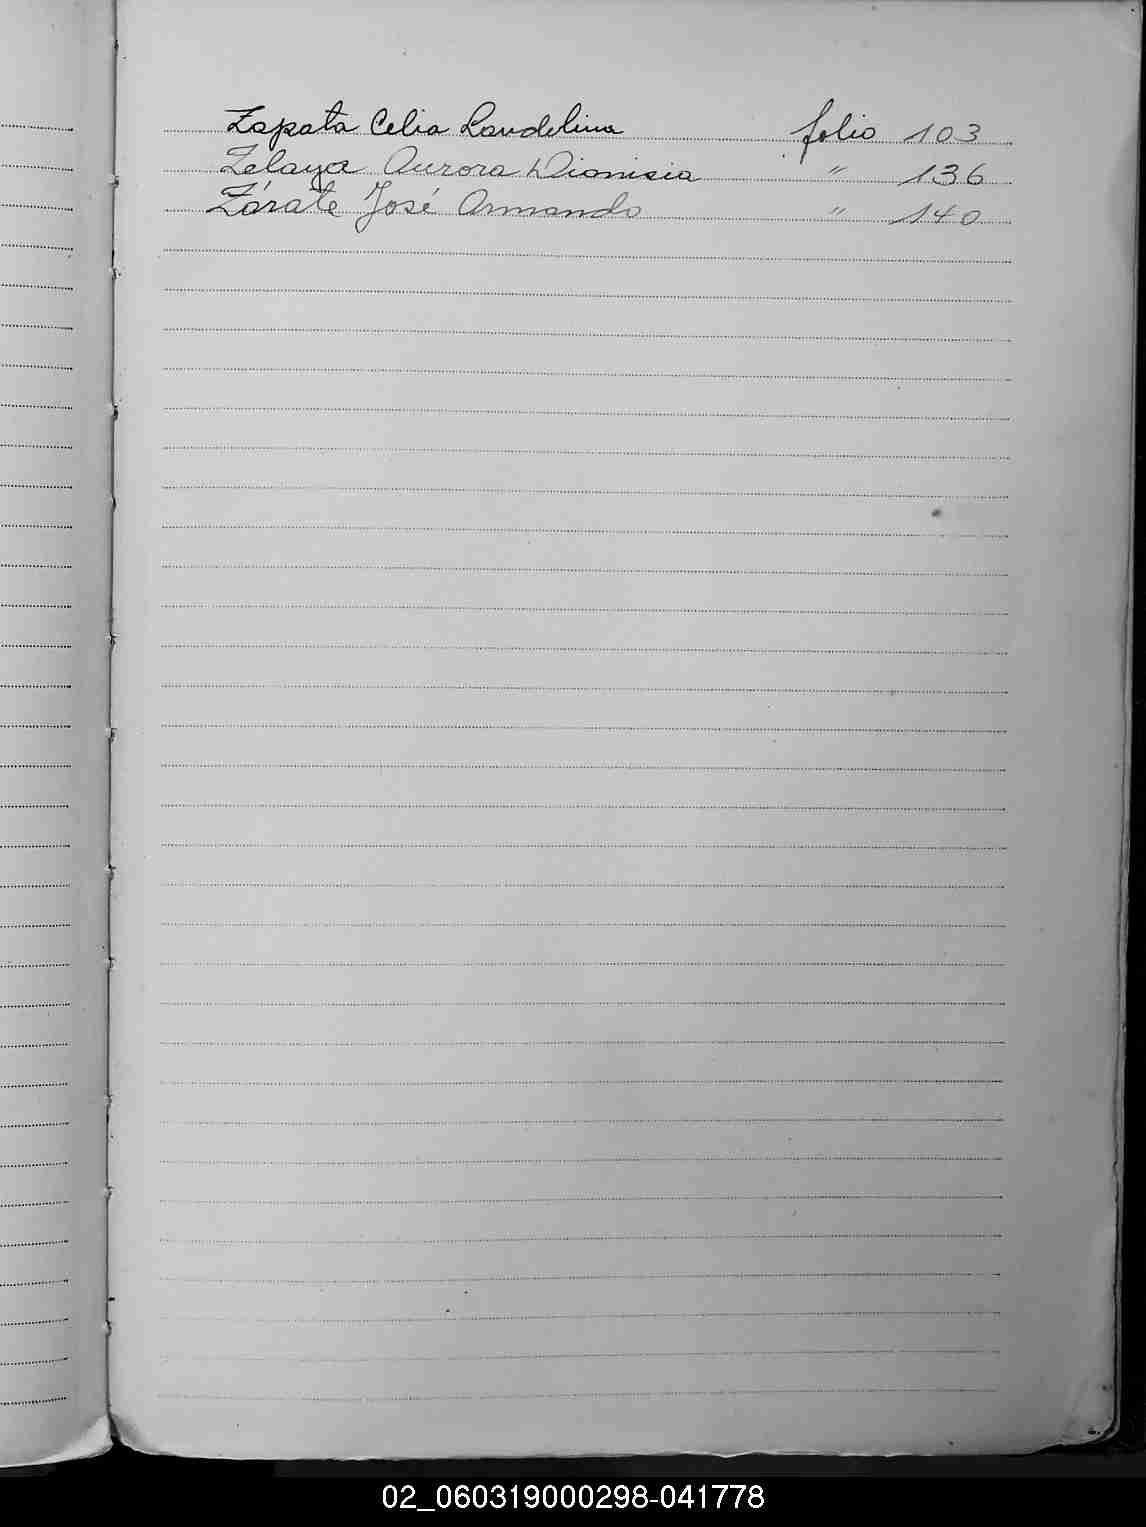 Zapata Celia Laudelina folio 103
Zelaya Aurora Dionisia " 136
Zárate José Armando " 140
02_060319000298-041778